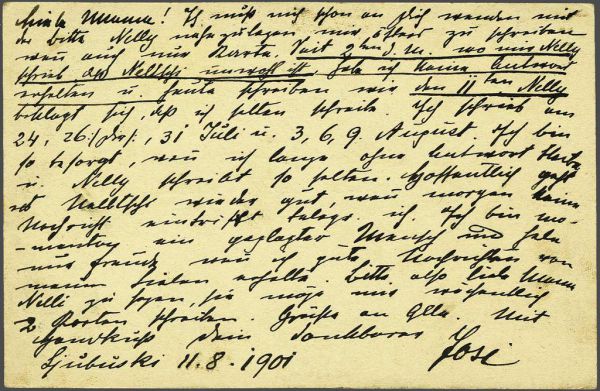 Liebe Mama! Ich muß mich schon an Dich wenden mit
der bitte Nelly nahezulegen, mir öfters zu schreiben
wenn auch nur Karte. Seit 2ten d. M. wo mir Nelly
schrieb daß Neltschi unwohl ist, habe ich keine Antwort
erhalten u. heute schreiben wir den 11ten. Nelly
beklagt sich, daß ich selten schreibe. Ich schrieb am
24, 26, 31 Juli u. 3, 6, 9. August. Ich bin
so besorgt, wenn ich lange ohne Antwort bleibe
u. Nelly schreibt so selten. Hoffentlich geht
es Neltschi wieder gut, wenn morgen keine
Nachricht eintrifft telegr. ich. Ich bin mo-
mentan ein geplagter Mensch und habe
nur Freude wenn ich gute Nachrichten von
meinen Lieben erhalte. Bitte also liebe Mama
Nelli zu sagen, sie möge mir wöchentlich
2 Karten schreiben. Grüße an Alle. Mit
Handkuß Dein dankbarer
Ljubuski 11.8.1901 Josi